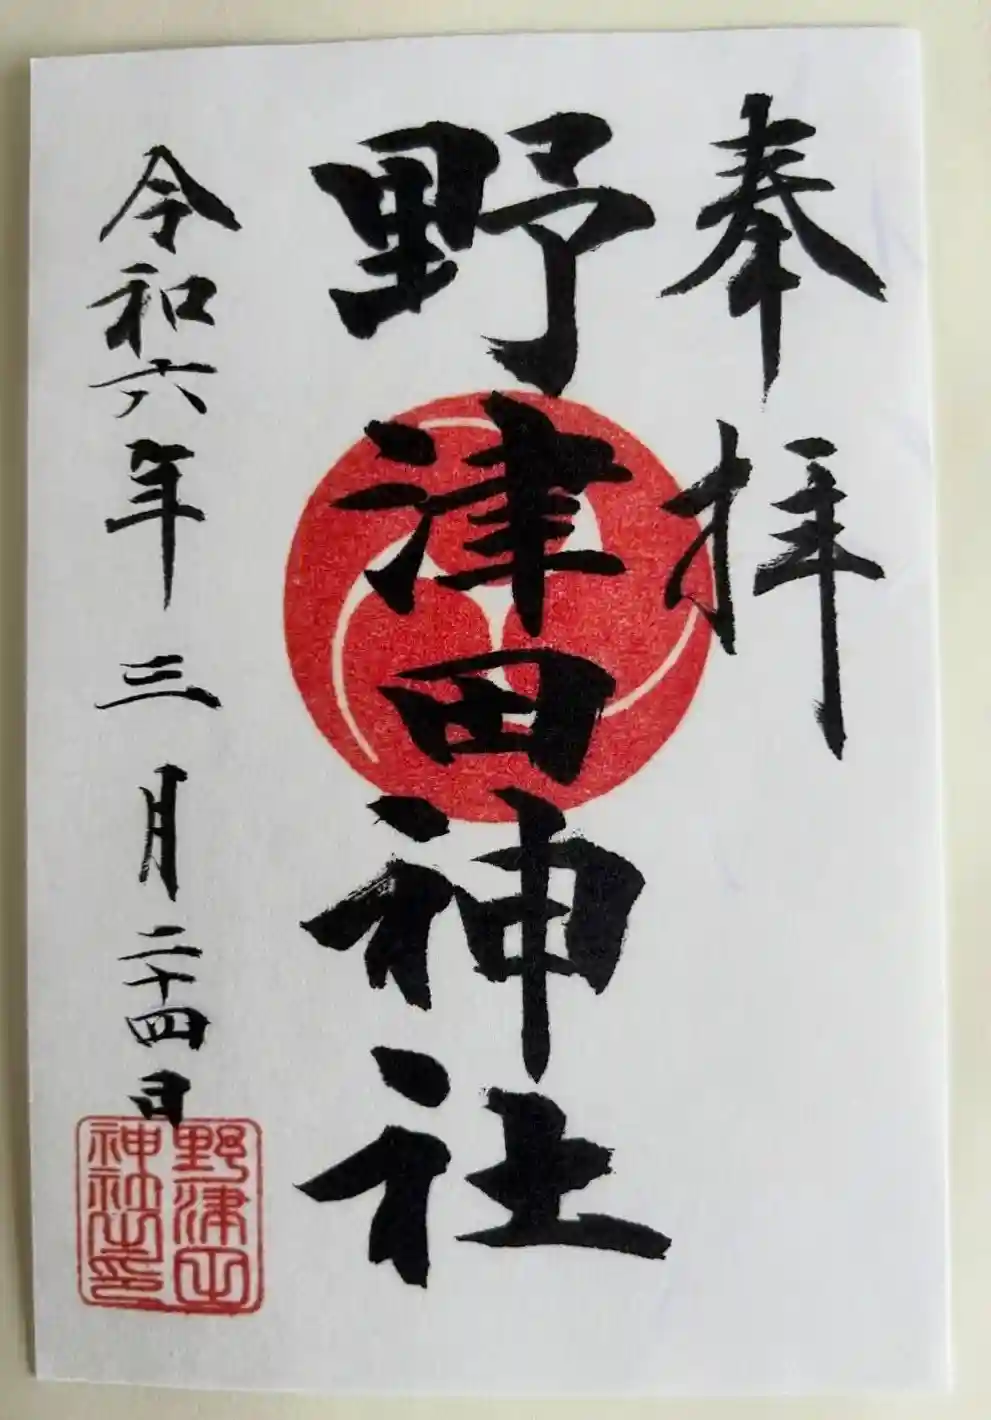 奉拝
野津田神社
令和六年三月二十四日
野津田
神社之印